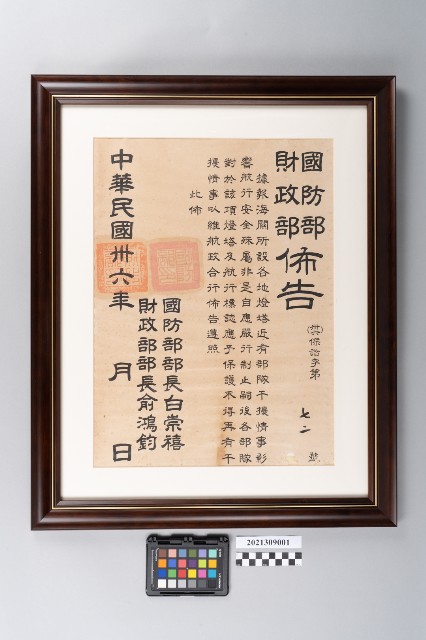 國防部
財政部
佈告
字第
七二
號
據報海關所設各地燈塔近有部隊干擾情事影
響航行安全殊屬非是自應嚴行制止嗣後各部隊
對於該項燈塔及航行標誌應予保護不得再有干
擾情事以維航政合行佈告遵照
此佈
國防部部長白崇禧
財政部部長俞鴻鈞
中華民國卅六年 月 日
2021309001